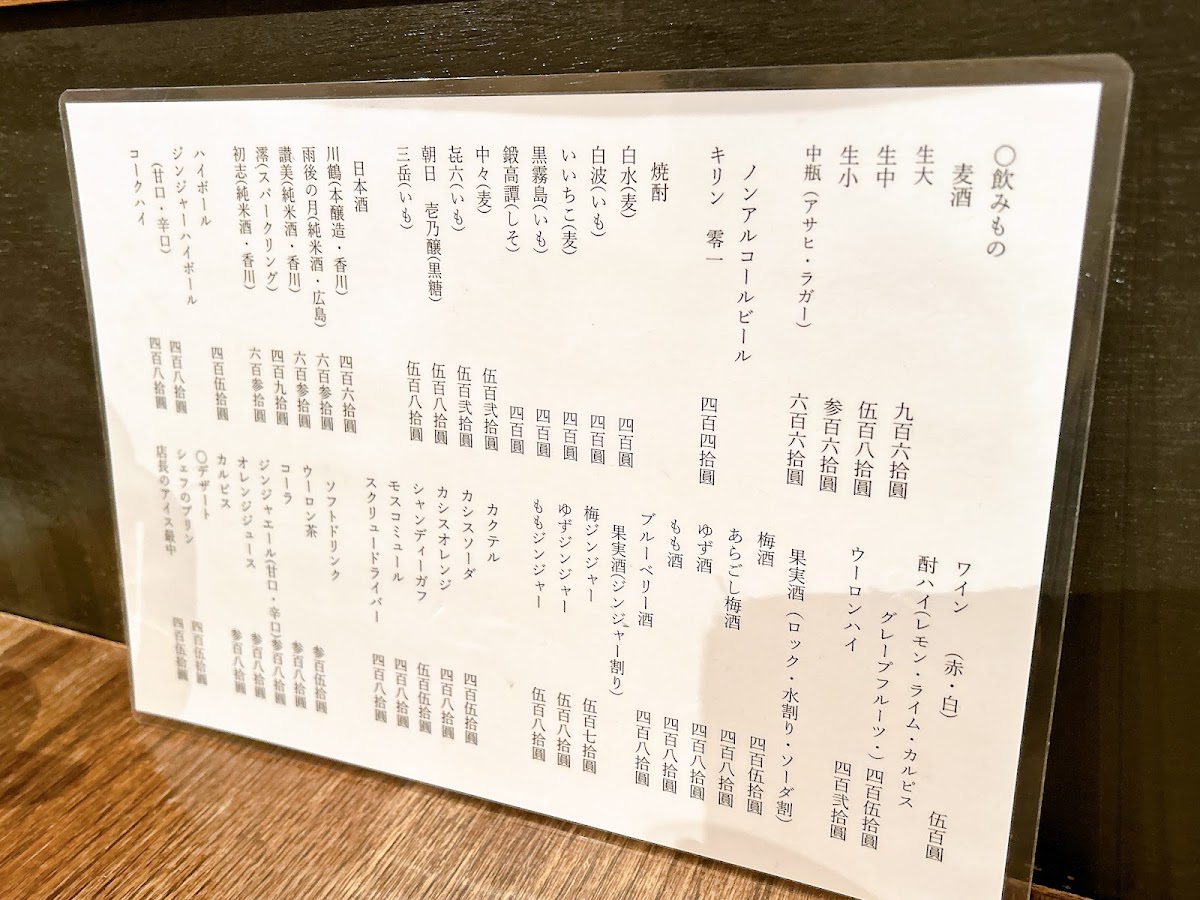 〇飲みもの
麦酒
生大 九百六拾圓
生中 伍百八拾圓
生小 参百六拾圓
中瓶(アサヒ・ラガー) 六百六拾圓
ノンアルコールビール
キリン 零一 四百四拾圓
焼酎
白水(麦) 四百圓
白波(いも) 四百圓
いいちこ(麦) 四百圓
黒霧島(いも) 四百圓
鍛高譚(しそ) 四百圓
中々(麦) 伍百弐拾圓
㐂六(いも) 伍百弐拾圓
朝日 壱乃醸(黒糖) 伍百八拾圓
三岳(いも) 伍百八拾圓
日本酒
川鶴(本醸造・香川) 四百六拾圓
雨後の月(純米酒・広島) 六百参拾圓
讃美(純米酒・香川) 六百参拾圓
澪(スパークリング) 四百九拾圓
初志(純米酒・香川) 六百参拾圓
ハイボール 四百伍拾圓
ジンジャーハイボール
(甘口・辛口) 四百八拾圓
コークハイ 四百八拾圓
ワイン (赤・白) 伍百圓
酎ハイ(レモン・ライム・カルピス
グレープフルーツ・) 四百伍拾圓
ウーロンハイ 四百弐拾圓
果実酒(ロック・水割り・ソーダ割)
梅酒 四百伍拾圓
あらごし梅酒 四百八拾圓
ゆず酒 四百八拾圓
もも酒 四百八拾圓
ブルーベリー酒 四百八拾圓
果実酒(ジンジャー割り)
梅ジンジャー 伍百七拾圓
ゆずジンジャー 伍百八拾圓
ももジンジャー 伍百八拾圓
カクテル
カシスソーダ 四百伍拾圓
カシスオレンジ 四百八拾圓
シャンディーガフ 伍百伍拾圓
モスコミュール 四百八拾圓
スクリュードライバー 四百八拾圓
ソフトドリンク
ウーロン茶 参百伍拾圓
コーラ 参百八拾圓
ジンジャエール(甘口・辛口) 参百八拾圓
オレンジジュース 参百八拾圓
カルピス 参百八拾圓
〇デザート
シェフのプリン 四百伍拾圓
店長のアイス最中 四百伍拾圓